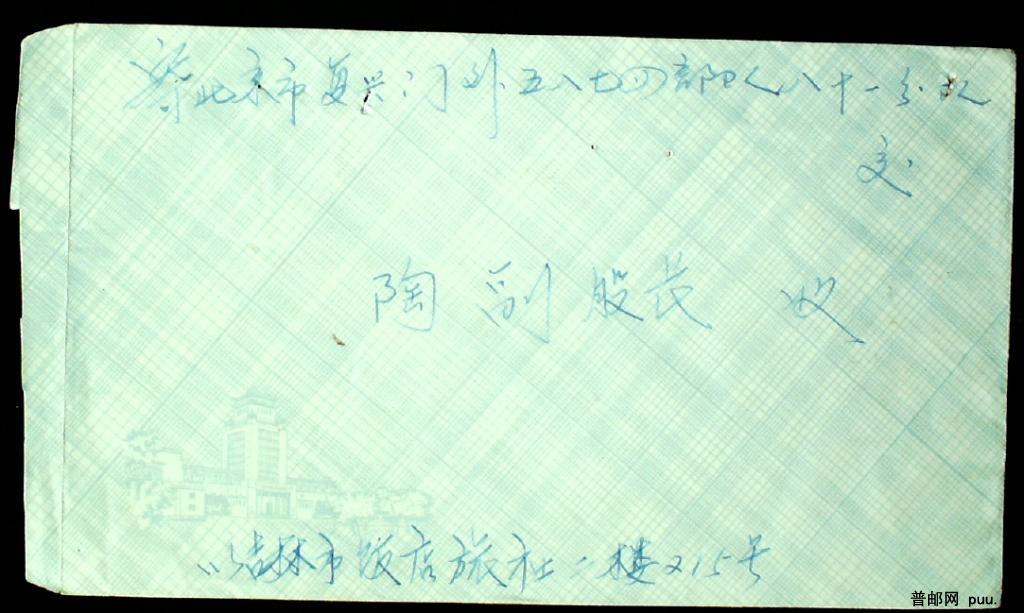 寄北京市复兴门外五八七四部队八十一分队
交
陶副股长 收
吉林市饭店旅社二楼215号
普邮网 puu.